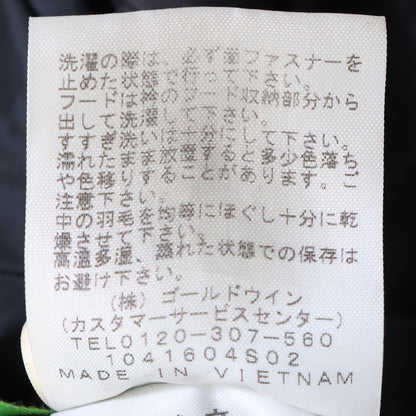 洗濯の際は、必ず全ファスナーを
止めた状態で行って下さい。
フードは衿のフード収納部分から
出して洗濯して下さい。
すすぎ洗いは十分にして下さい。
濡れたまま放置すると多少色落ち
や色移りすることがあります。ご
注意下さい。
中の羽毛を均等にほぐし十分に乾
燥させて下さい。
高温多湿、蒸れた状態での保存は
お避け下さい。
(株) ゴールドウイン
(カスタマーサービスセンター)
TEL0120-307-560
1041604S02
MADE IN VIETNAM